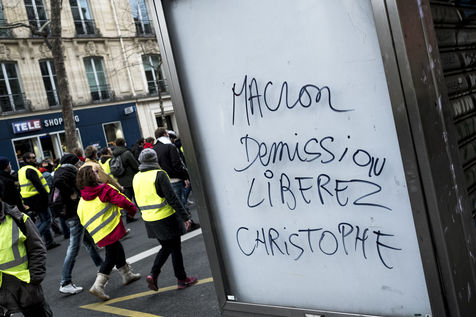 TELE SHOPPING
MACron
Demission
LiBEREZ
CHRiSTOPHE